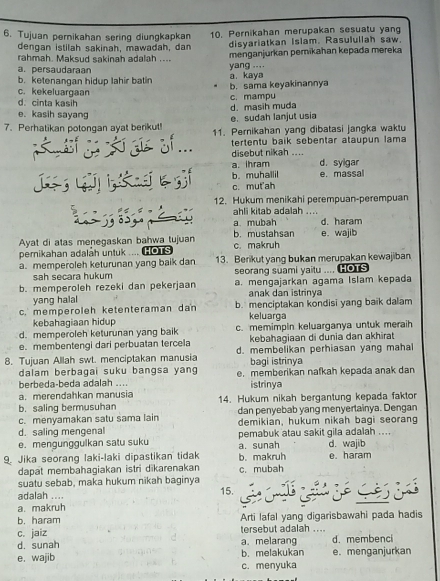 6. Tujuan pernikahan sering diungkapkan
dengan istilah sakinah, mawadah, dan
rahmah. Maksud sakinah adalah ....
a. persaudaraan
b. ketenangan hidup lahir batin
c. kekeluargaan
d. cinta kasih
e. kasih sayang
7. Perhatikan potongan ayat berikut!
... أَنْ خَلَقَ لَكُمْ مِنْ أَنْفُسِكُمْ
أَزْوَاجًا لِتَسْكُنُوا إِلَيْهَا وَجَعَلَ
بَيْنَكُمْ مَوَدَّةً وَرَحْمَةً
Ayat di atas menegaskan bahwa tujuan
pernikahan adalah untuk .... HOTS
a. memperoleh keturunan yang baik dan
sah secara hukum
b. memperoleh rezeki dan pekerjaan
yang halal
c. memperoleh ketenteraman dan
kebahagiaan hidup
d. memperoleh keturunan yang baik
e. membentengi dari perbuatan tercela
8. Tujuan Allah swt. menciptakan manusia
dalam berbagai suku bangsa yang
berbeda-beda adalah ....
a. merendahkan manusia
b. saling bermusuhan
c. menyamakan satu sama lain
d. saling mengenal
e. mengunggulkan satu suku
9. Jika seorang laki-laki dipastikan tidak
dapat membahagiakan istri dikarenakan
suatu sebab, maka hukum nikah baginya
adalah ....
a. makruh
b. haram
c. jaiz
d. sunah
e. wajib
10. Pernikahan merupakan sesuatu yang
disyariatkan Islam. Rasulullah saw.
menganjurkan pernikahan kepada mereka
yang ....
a. kaya
b. sama keyakinannya
c. mampu
d. masih muda
e. sudah lanjut usia
11. Pernikahan yang dibatasi jangka waktu
tertentu baik sebentar ataupun lama
disebut nikah ....
a. ihram d. syigar
b. muhallil e. massal
c. mut'ah
12. Hukum menikahi perempuan-perempuan
ahli kitab adalah ....
a. mubah d. haram
b. mustahsan e. wajib
c. makruh
13. Berikut yang bukan merupakan kewajiban
seorang suami yaitu .... HOTS
a. mengajarkan agama Islam kepada
anak dan istrinya
b. menciptakan kondisi yang baik dalam
keluarga
c. memimpin keluarganya untuk meraih
kebahagiaan di dunia dan akhirat
d. membelikan perhiasan yang mahal
bagi istrinya
e. memberikan nafkah kepada anak dan
istrinya
14. Hukum nikah bergantung kepada faktor
dan penyebab yang menyertainya. Dengan
demikian, hukum nikah bagi seorang
pemabuk atau sakit gila adalah ....
a. sunah d. wajib
b. makruh e. haram
c. mubah
15. فَمَنْ رَغِبَ عَنْ سُنَّتِيْ فَلَيْسَ مِنِّيْ
Arti lafal yang digarisbawahi pada hadis
tersebut adalah ....
a. melarang d. membenci
b. melakukan e. menganjurkan
c. menyuka